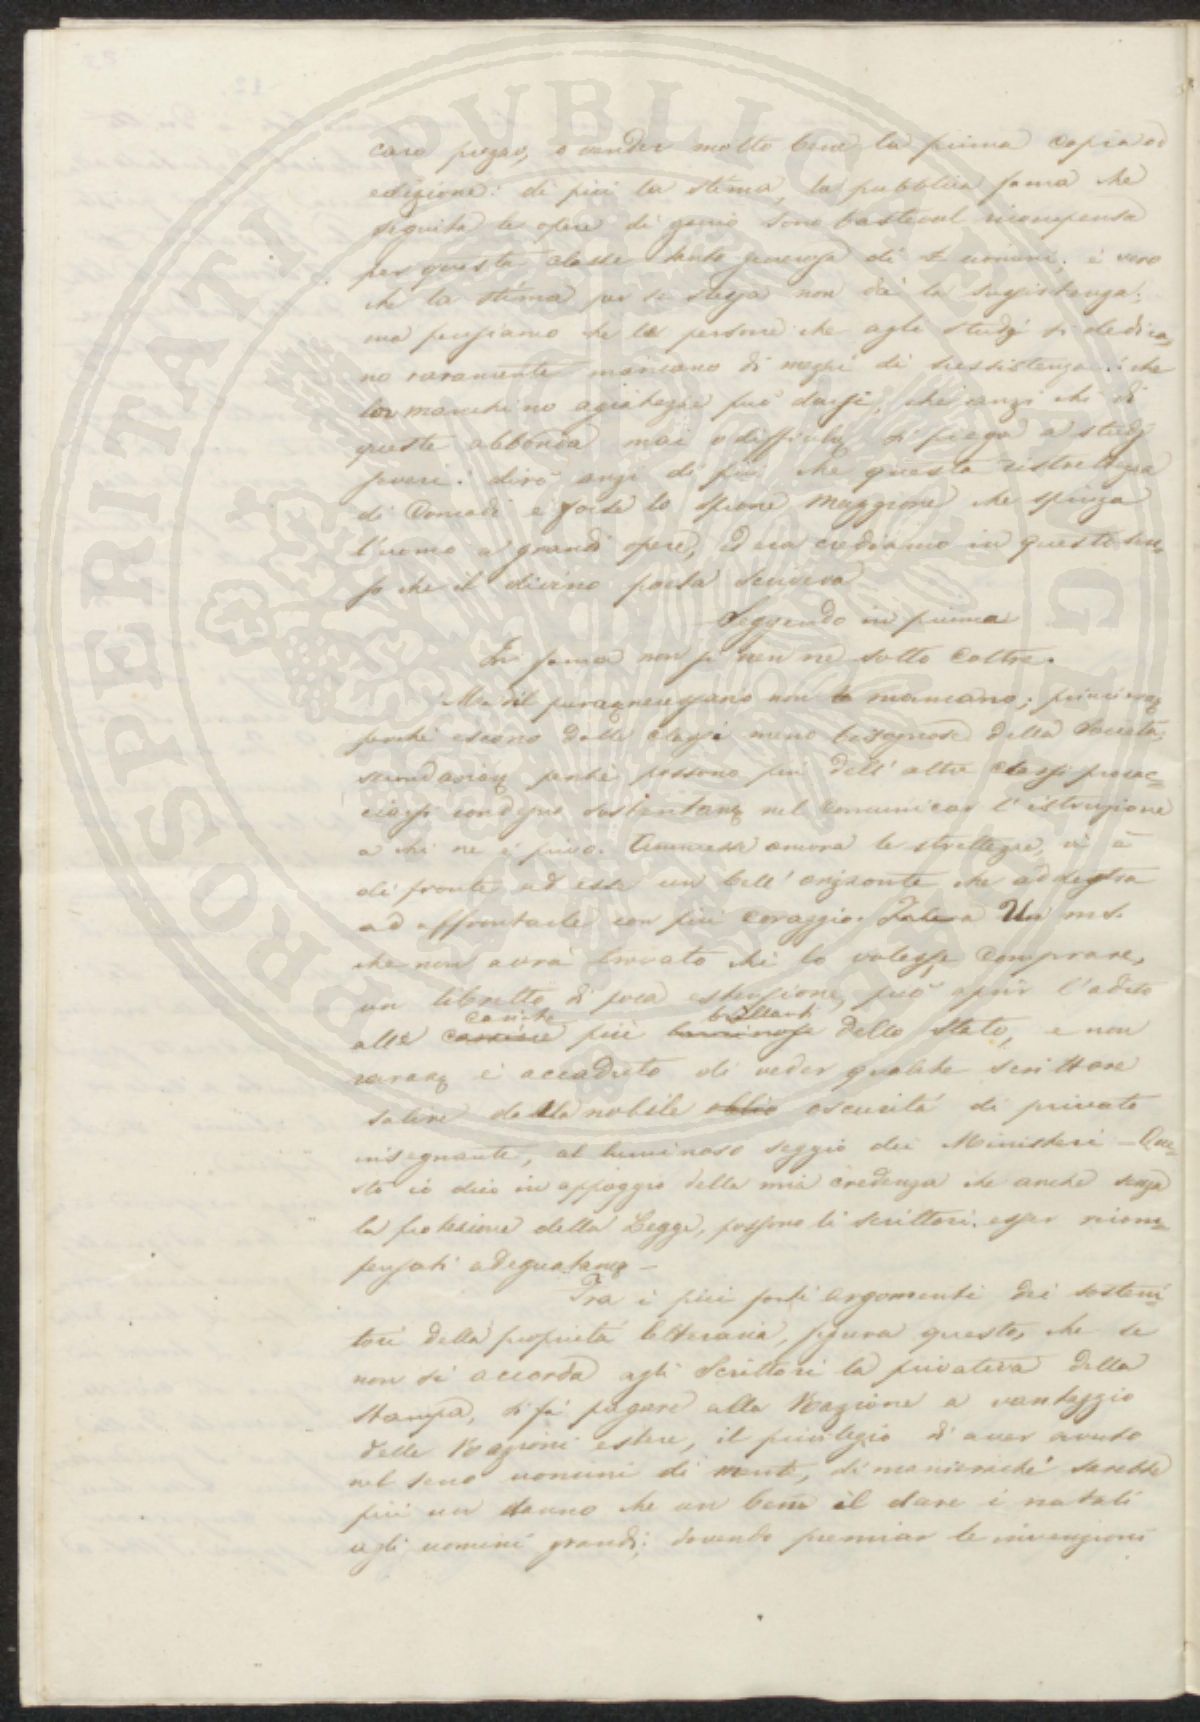 caro prezzo, o vender molto bene la prima copia od
edizione: di più la stima, la pubblica fama che
seguita le opere di genio sono bastevol ricompensa
per questa classe tanto generosa di uomini; è vero
che la stima per se stessa non dà la sussistenza;
ma pensiamo che le persone che agli studj si dedica_
no raramente mancano di mezzi di sussistenza: che
lor manchino agiatezze può darsi, chè anzi chi di
queste abbonda mai o difficilm si piega a studj
severi: dirò anzi di più che questa ristrettezza
di comodi è forse lo sprone maggiore che spinga
l'uomo a grandi opere, ed era crediamo in questo sen_
so che il divino poeta scriveva
Seggendo in piuma
In fama non si vien nè sotto coltre.
Ma il puragnecessario non le mancano; primieram
perchè escono dalle classi meno bisognose della Società;
secondariam perchè possono più dell'altre classi procac_
ciarsi condegno sostentam nel comunicar l'istruzione
a chi ne è privo. Ammesse ancora le strettezze, vi è
di fronte ad esse un bell'orizzonte che addestra
ad affrontarle con più coraggio. Talora Un ms.
che non avrà trovato chi lo volesse comprare,
un libretto di poca estensione, può aprir l'adito
cariche brillanti
alle carriere più luminose dello Stato, e non
raram è accaduto di veder qualche scrittore
salire dalla nobile oblio oscurità di privato
insegnante, al luminoso seggio dei Ministeri - Que_
sto io dico in appoggio della mia credenza che anche senza
la protezione della Legge, possono li scrittori esser ricom_
pensati adeguatam -
Tra i più forti argomenti dei sosteni_
tori della proprietà letteraria, figura questo, che se
non si accorda agli Scrittori la privativa della
stampa, si fà pagare alla Nazione a vantaggio
delle Nazioni estere, il privilegio di aver avuto
nel seno uomini di mente, di manierachè sarebbe
più un danno che un bene il dare i natali
agli uomini grandi; dovendo premiar le invenzioni